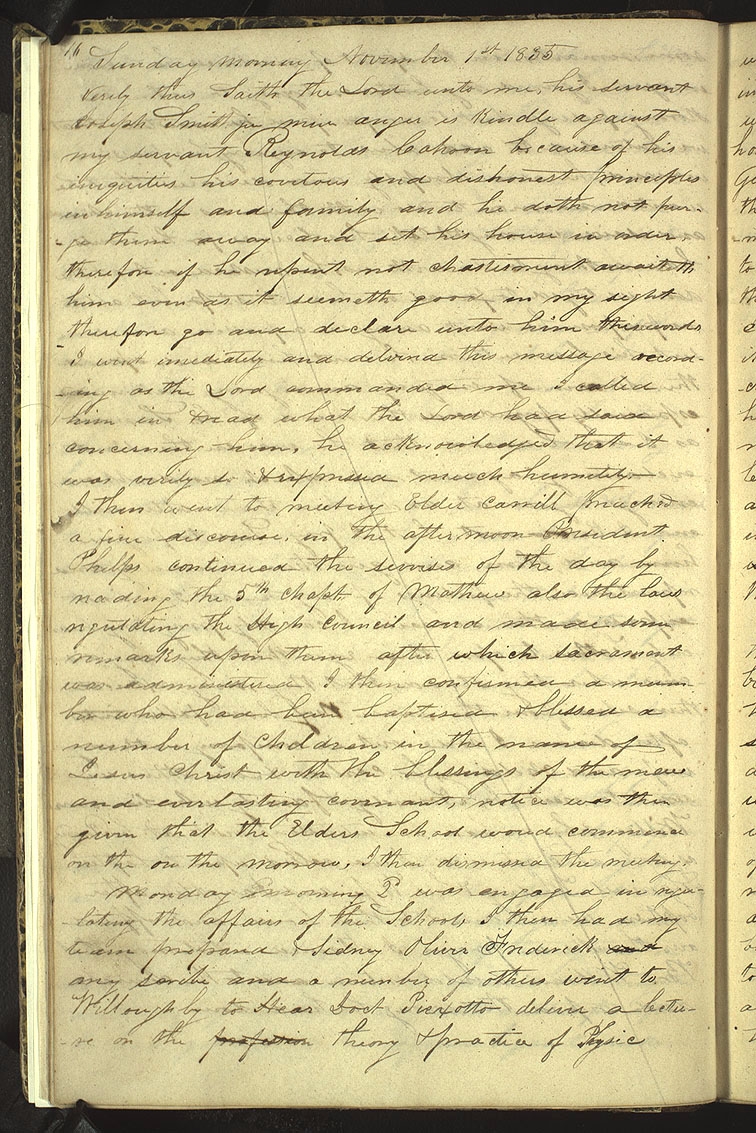 16
Sunday morning November 1st 1835
Verily thus Saith the Lord unto me, his servant
Joseph Smith jr mine anger is kindle against
my servant Reynolds Cahoon because of his
iniquities his covetous and dishonest principles
in himself and family and he doth not pur-
-ge them away and set his house in order,
therefore if he repent not chastisment awaiteth
him even as it seemeth good in my sight
therefore go and declare unto him this words
I went imediately and delivired this message accord-
-ing as the Lord commanded me I called
him in & read what the Lord had said
concerning him, he acknowledged that it
was verily so & expressed much humility
I then went to meeting Elder Carrill preached
a fine discourse, in the afternoon President
Phelps continued the servises of the day by
reading the 5th chapt. of Mathew also the laws
regulating the High Council and made some
remarks upon them after which sacrament
was administered I then confirmed a mem-
ber who had been baptised & blessed a
number of Children in the name of
Jesus Christ with the blessings of the new
and everlasting covenant, notice was then
given that the Elders School would commence
on the on the morrow, I then dismissed the meeting
Monday morning 2 was engaged in regu-
-lating the affairs of the School, I then had my
team prepared & Sidney Oliver Frederick and
my scribe and a number of others went to
Willoughby to Hear Doct Piexotto deliver a lectu-
-re on the profession theory & practice of Physic